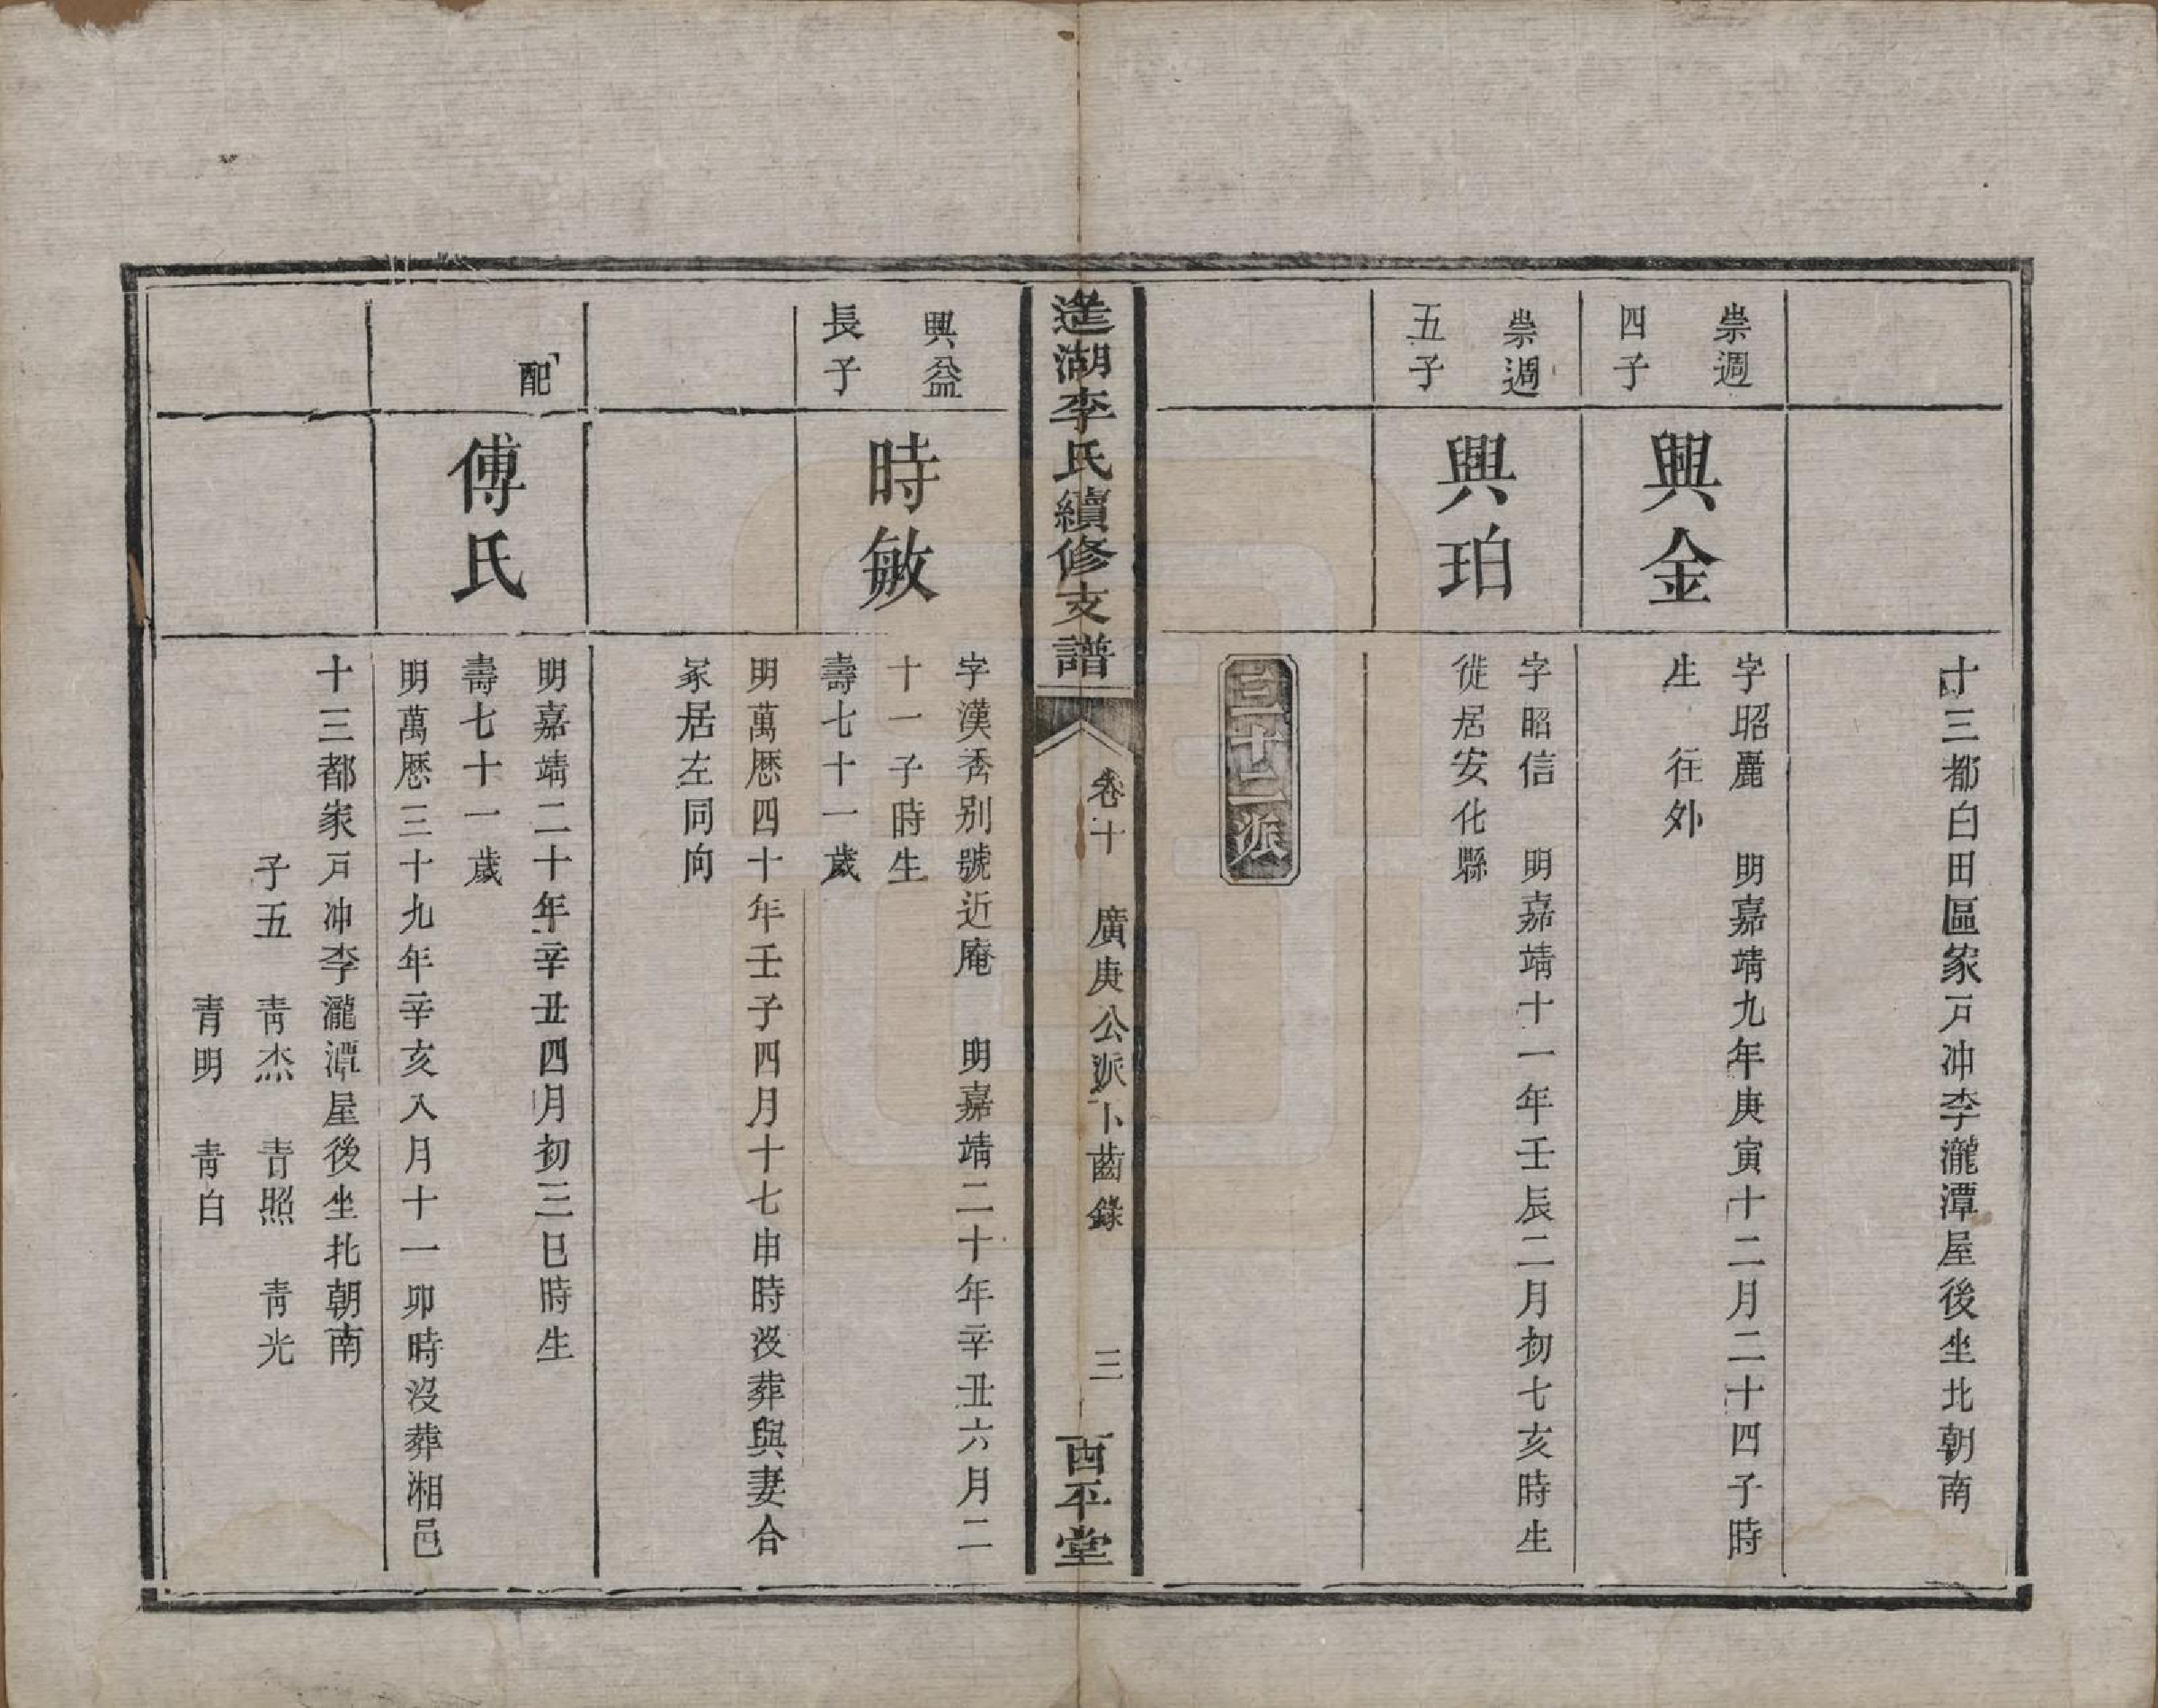 十三都白田區家戸冲李瀧潭屋後坐北朝南
崇週
四子
興金
字昭麗　明嘉靖九年庚寅十二月二十四子時
生　往外
崇週
五子
興珀
字昭信　明嘉靖十一年壬辰二月初七亥時生
徙居安化縣
三十二派
湖李氏續修支譜
卷十　廣庚公派卜齒錄　三
西平堂
興益
長子
時敏
字漢秀别號近庵　明嘉靖二十年辛丑六月二
十一子時生
壽七十一歲
明萬厯四十年壬子四月十七申時沒葬與妻合
冢居左同向
配
傅氏
明嘉靖二十年辛丑四月初三巳時生
壽七十一歲
明萬厯三十九年辛亥八月十一卯時沒葬湘邑
十三都家戸冲李瀧潭屋後坐北朝南
子五　靑杰　靑照　靑光
靑明　靑白